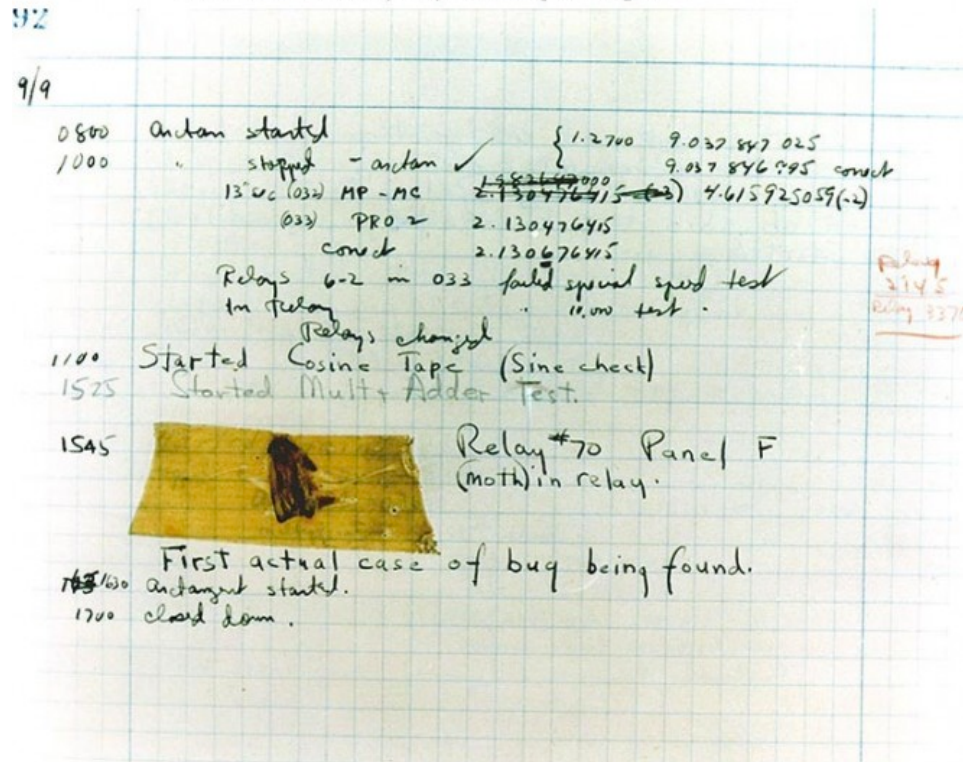 92
9/9
0800 arctan started { 1.2700 9.037 847 025
1000 " stopped - arctan ✓ 9.037 846 795 correct
13"uc (032) MP - MC 2.130476415 (-3) 4.615925059(-2)
(033) PRO 2 2.130476415
correct 2.130676415
Relays 6-2 in 033 failed special speed test
In Relay " 10,000 test .
Relay
2145
Relay 3370
Relays changed
1100 Started Cosine Tape (Sine check)
1525 Started Mult + Adder Test.
1545 Relay #70 Panel F
(moth) in relay.
First actual case of bug being found.
1630 arctangent started.
1700 closed down.